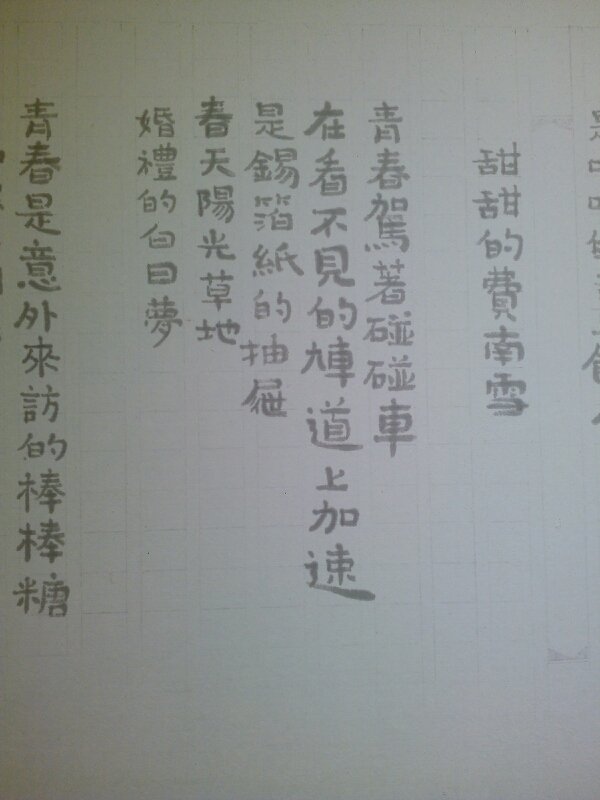 甜甜的費南雪
青春駕著碰碰車
在看不見的軌道上加速
是錫箔紙的抽屜
春天陽光草地
婚禮的白日夢
青春是意外來訪的棒棒糖